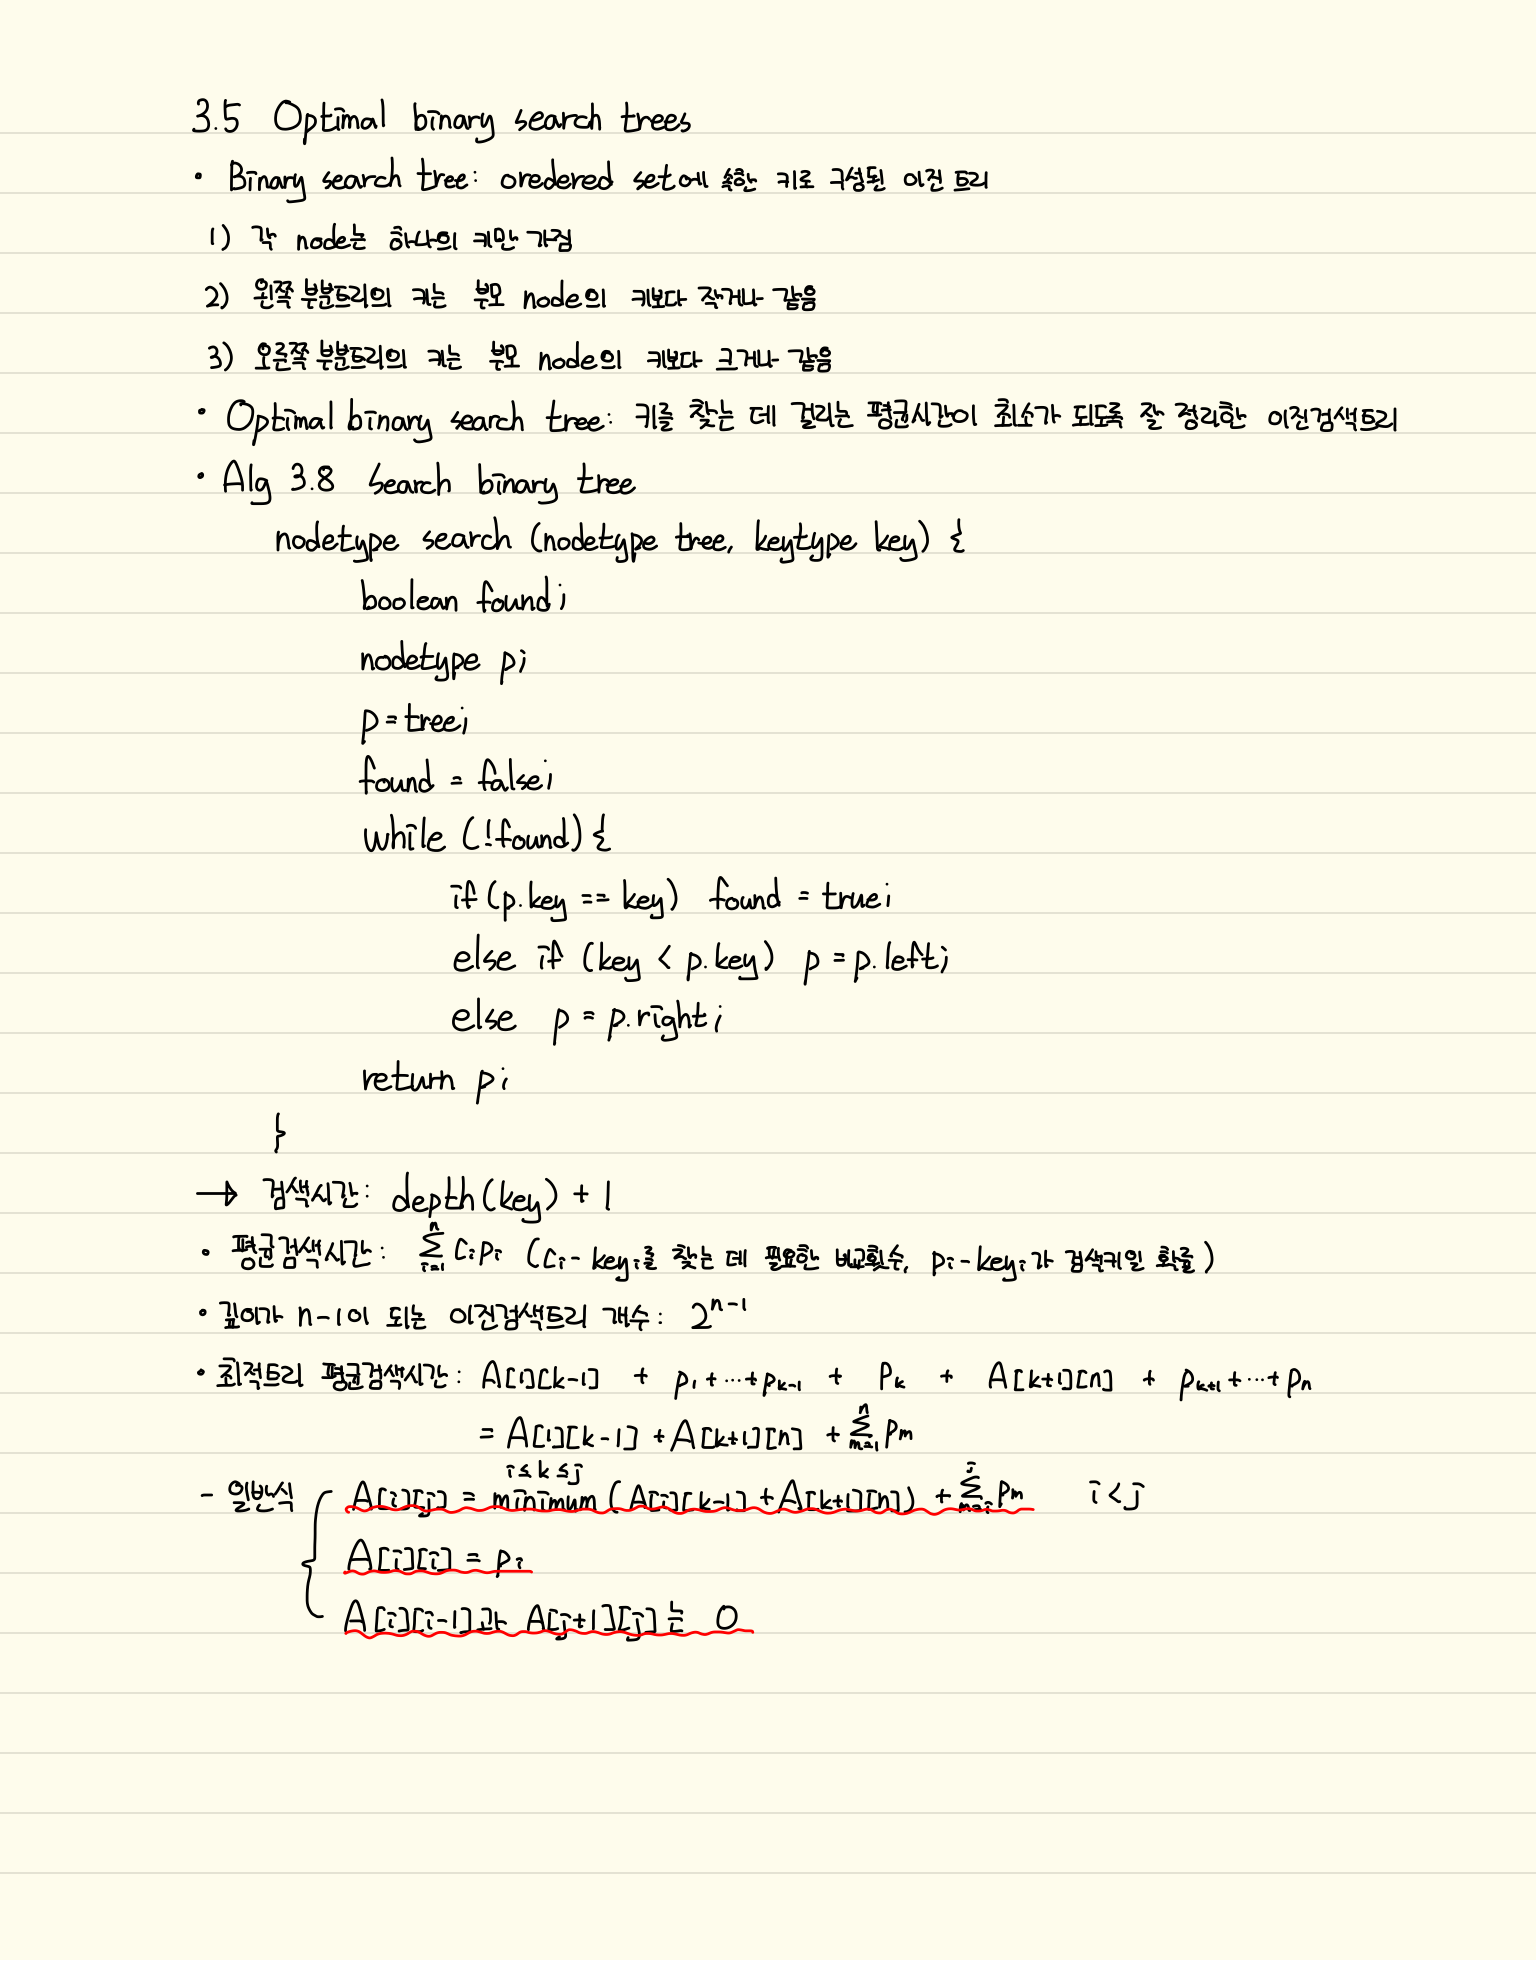 3.5 Optimal binary search trees
• Binary search tree: oredered set에 속한 키로 구성된 이진 트리
1) 각 node는 하나의 키만 가짐
2) 왼쪽 부분트리의 키는 부모 node의 키보다 작거나 같음
3) 오른쪽 부분트리의 키는 부모 node의 키보다 크거나 같음
• Optimal binary search tree: 키를 찾는 데 걸리는 평균시간이 최소가 되도록 잘 정리한 이진검색트리
• Alg 3.8 Search binary tree
nodetype search (nodetype tree, keytype key) {
boolean found;
nodetype p;
p = tree;
found = false;
while (!found) {
if (p.key == key) found = true;
else if (key < p.key) p = p.left;
else p = p.right;
return p;
}
→ 검색시간: depth(key) + 1
• 평균검색시간: \sum_{i=1}^{n} c_i p_i (c_i - key_i를 찾는 데 필요한 비교횟수, p_i - key_i가 검색키일 확률)
• 깊이가 n-1이 되는 이진검색트리 개수: 2^{n-1}
• 최적트리 평균검색시간: A[1][k-1] + p_1 + ⋯ + p_{k-1} + p_k + A[k+1][n] + p_{k+1} + ⋯ + p_n
= A[1][k-1] + A[k+1][n] + \sum_{m=1}^{n} p_m
- 일반식 { A[i][j] = minimum_{i≤k≤j} (A[i][k-1] + A[k+1][n]) + \sum_{m=i}^{j} p_m i < j
A[i][i] = p_i
A[i][i-1]과 A[j+1][j]는 0